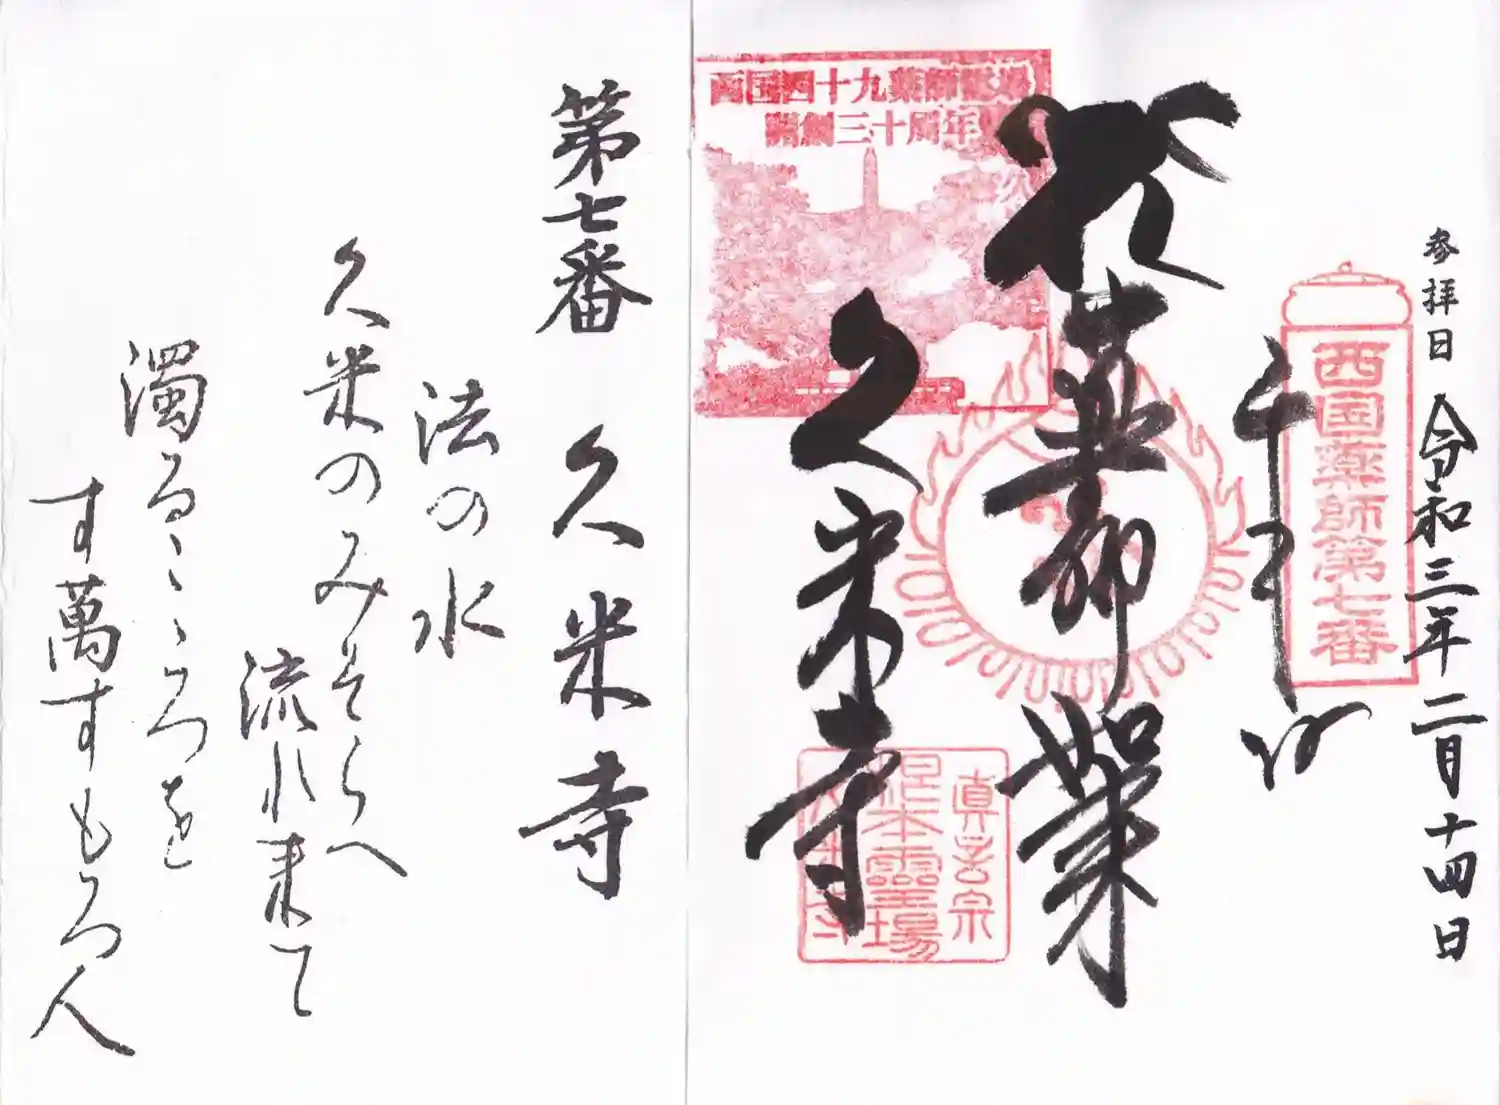 参拝日 令和三年二月十四日
西国薬師第七番
西国四十九薬師霊場
開創三十周年
久米寺
眞言宗
根本靈場
久米寺
第七番 久米寺
法の水
久米のみそらへ
流れ来て
濁るこゝろを
す萬すもろ人